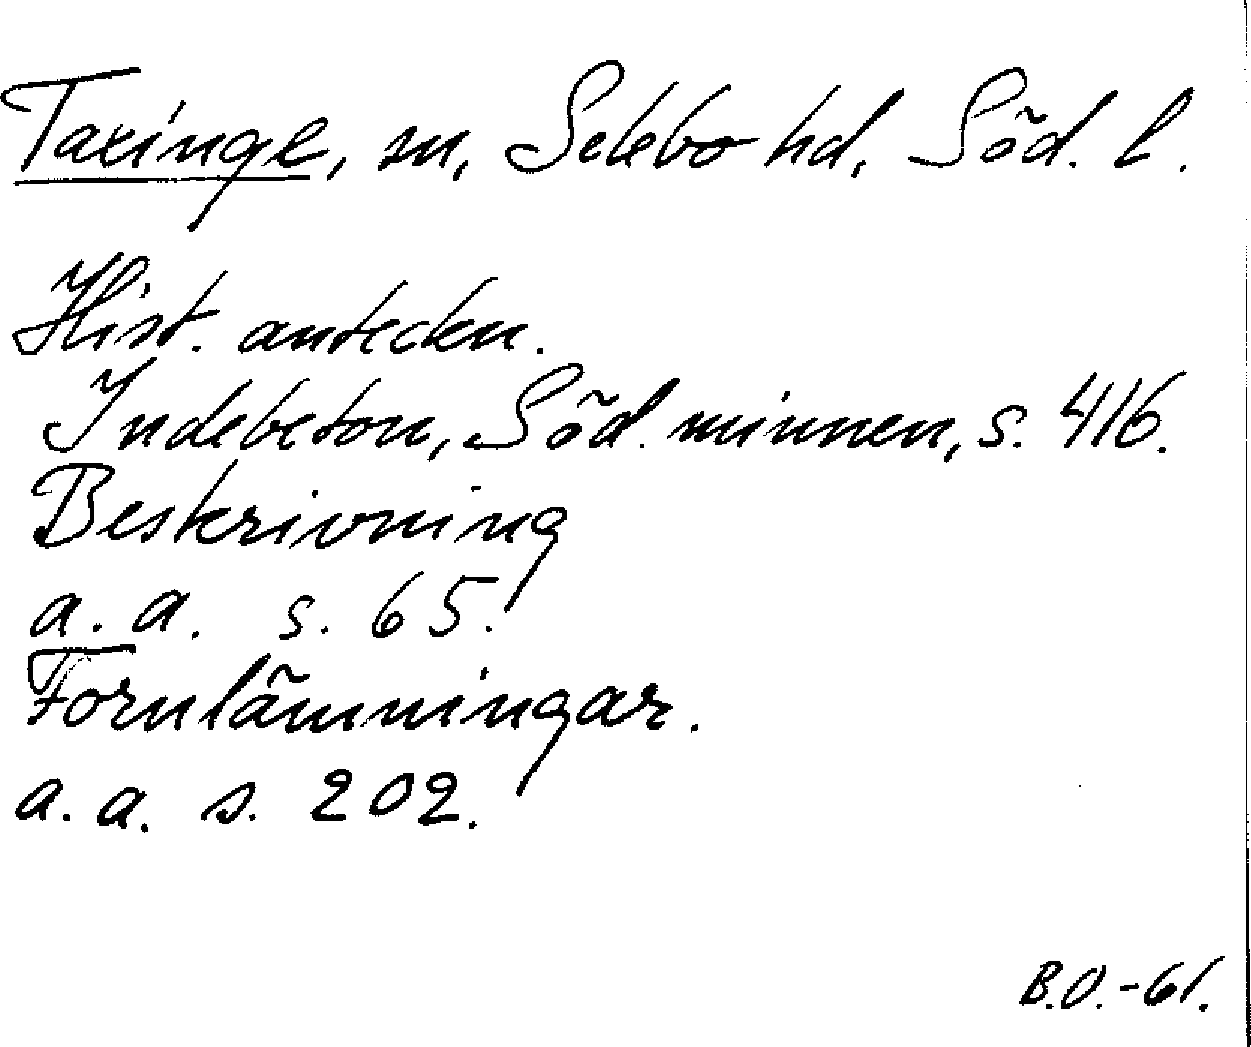 Taxinge, sn, Selebo hd, Söd. l.
Hist. anteckn.
Indebetou, Söd. minnen, s. 416.
Beskrivning
a. a. s. 65.
Fornlämningar.
a. a. s. 202.
B.O.-61.